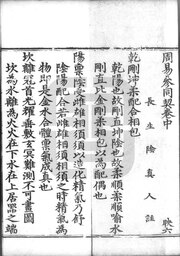 周易參同契卷中 映六
長生陰真人註
乾剛坤柔配合相包
乾陽也故剛直坤陰也故柔順柔順喻水
剛直比金剛柔相包以為配偶也
陽稟陰受雌雄相須相須以造化精氣乃舒
陰陽配合若雌雄相須相須之時精氣為
物即是金水合體變氣成真也
坎離冠首光耀垂敷玄冥難測不可畫圖
坎為水離為火火在下水在上居眾之端